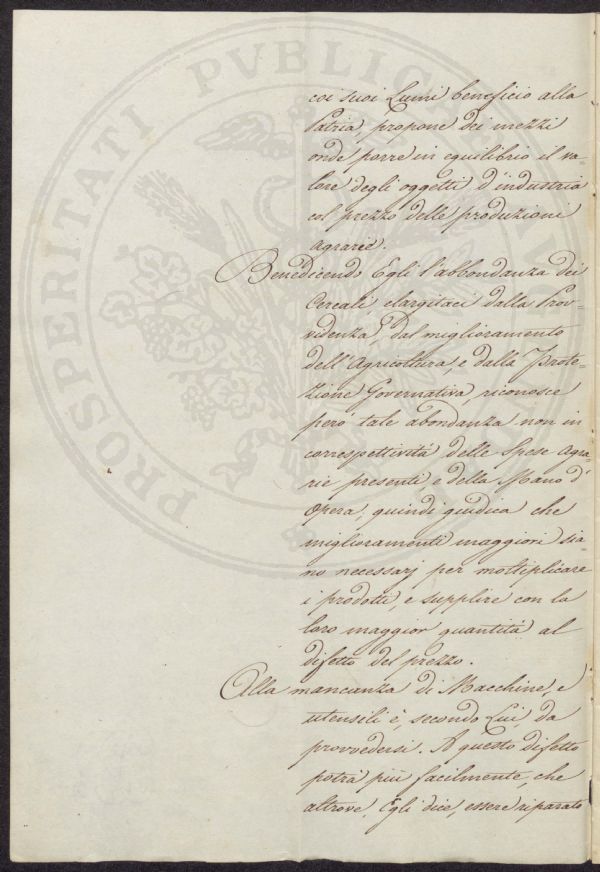 coi suoi Lumi beneficio alla
Patria, propone dei mezzi
onde porre in equilibrio il va-
lore degli oggetti d'industria
col prezzo delle produzioni
agrarie.
Benedicendo Egli l'abbondanza dei
Cereali, elargitaci dalla Prov-
videnza, dal miglioramento
dell'Agricoltura, e dalla Prote-
zione Governativa, riconosce
però tale abondanza non in
correspettività delle Spese Agra
rie presenti, e della Mano d'
Opera, quindi giudica che
miglioramenti maggiori sia-
no necessarj per moltiplicare
i prodotti, e supplire con la
loro maggior quantità al
difetto del prezzo.
Alla mancanza di Macchine, e
utensili è, secondo Lui, da
provvedersi. A questo difetto
potrà più facilmente, che
altrove, Egli dice, essere riparato
PROSPERITATI PVBLICAE